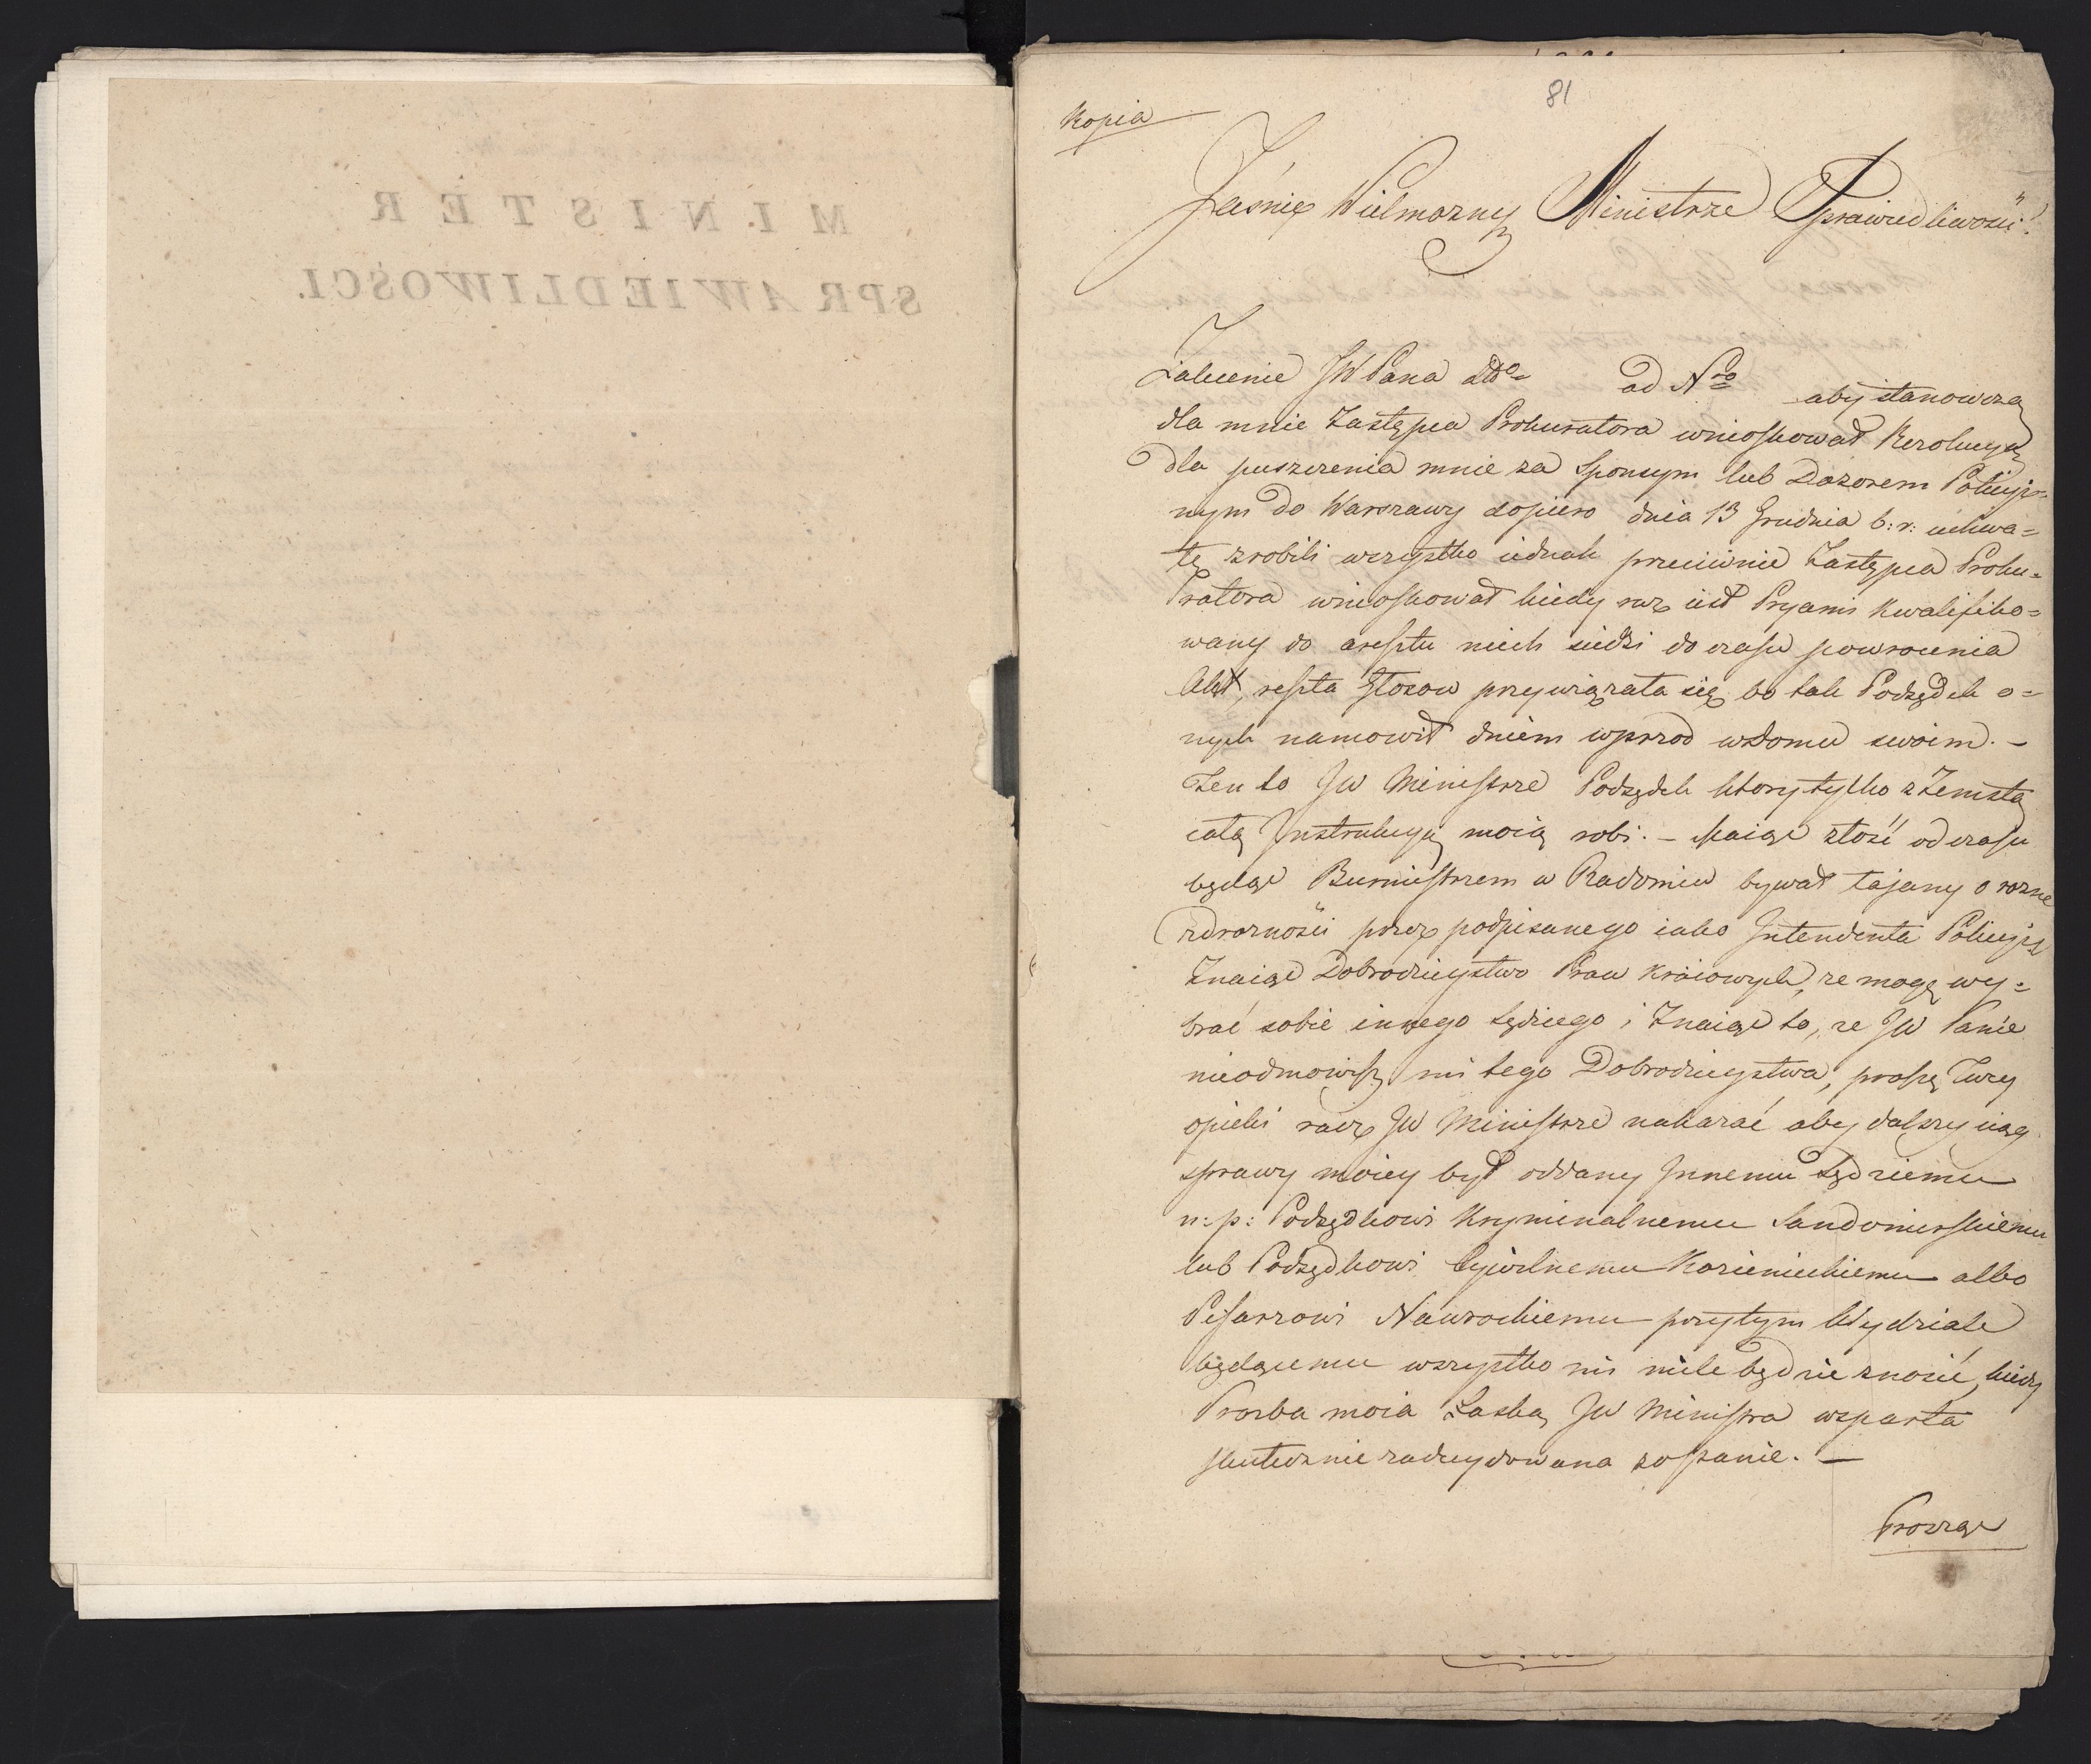 MINISTER
SPRAWIEDLIWOŚCI.
81
Kopia
Jaśnie Wielmożny Ministrze Sprawiedliwości!
Zalecenie JW Pana dd° ad Nro aby stanowczą
dla mnie Zastępca Prokuratora wnioskował Rezolucyą
dla puszczenia mnie za Sponsym lub Dozorem Policyi-
nym do Warszawy dopiero dnia 13 Grudnia b: r: uchwa=
łę zrobili wszystko iednak przeciwnie Zastępca Proku=
ratora wnioskował kiedy raz iest Pryams kwalifiko=
wany do aresztu niech siedzi do czasu powrocenia
Akt, reszta Głosow przywiązała się bo tak Podsędek o=
nych namowił dniem wprzod w domu swoim. –
Ten to JW Ministrze Podsędek ktory tylko z Zemstą
całą Instrukcyą moią robi. – Maiąc złość od czasu
będąc Burmistrzem w Radomiu bywał łajany o rożne
zdrożności przez podpisanego iako Intendenta Policyi,
Znaiąc Dobrodzieystwo Praw Kraiowych, że mogę wy=
brać sobie innego Sędziego i Znaiąc to, że JW Panie
nieodmowisz mi tego Dobrodzieystwa, proszę Twey
opieki racz JW Ministrze nakazać aby dalszy ciąg
sprawy moiey był oddany Innemu Sędziemu
n: p: Podsędkowi Kryminalnemu Sandomirskiemu
lub Podsędkowi Cywilnemu Kozienickiemu albo
Pisarzowi Nawrockiemu przytym Wydziale
będącemu wszystko mi miłe będzie znosić, kiedy
Prozba moia Łaską JW Ministra wsparta
skutecznie zadecydowana zostanie. –
Prosząc